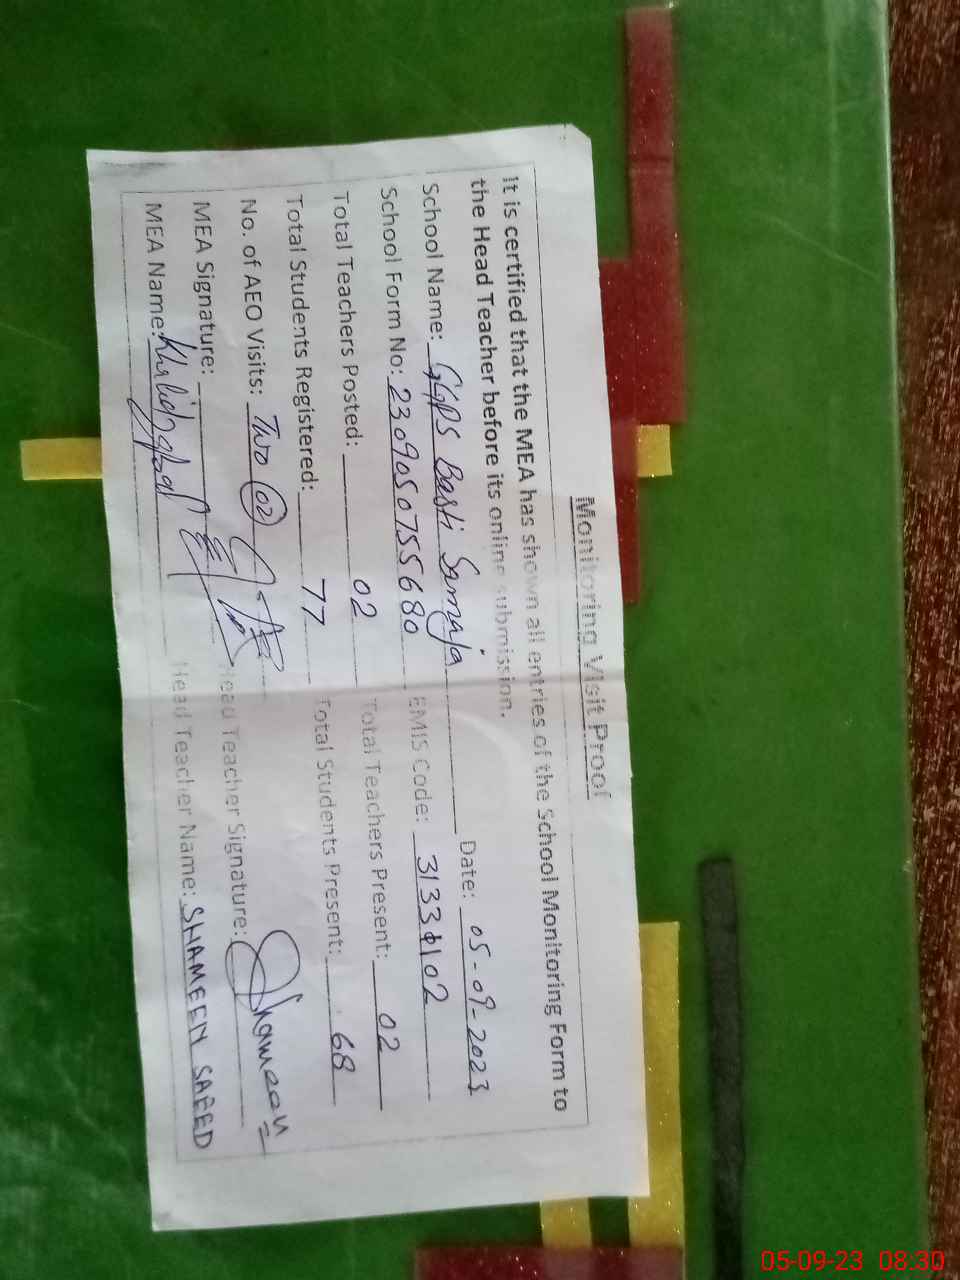 Monitoring Visit Proof
It is certified that the MEA has shown all entries of the School Monitoring Form to
the Head Teacher before its online submission.
School Name: GGPS Basti Samaja Date: 05-09-2023
School Form No: 2309050755680 EMIS Code: 31330102
Total Teachers Posted: 02 Total Teachers Present: 02
Total Students Registered: 77 Total Students Present: 68
No. of AEO Visits: Two 02
MEA Signature: Head Teacher Signature: Shameen
MEA Name: Khalid Iqbal Head Teacher Name: SHAMEEN SAEED
05-09-23 08:30